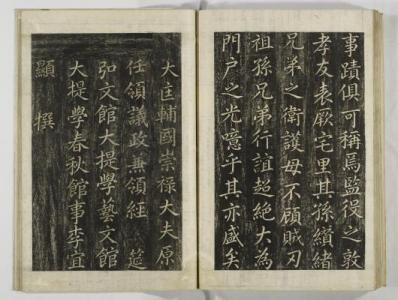 事蹟俱可稱焉監役之敦
孝友表厥宅里其孫纘緒
兄弟之衛護母不顧賊刃
祖孫兄弟行誼超絕大為
門戶之光噫乎其亦盛矣
大匡輔國崇祿大夫原
任領議政兼領經筵
弘文館大提學藝文館
大提學春秋館事李宜
顯撰